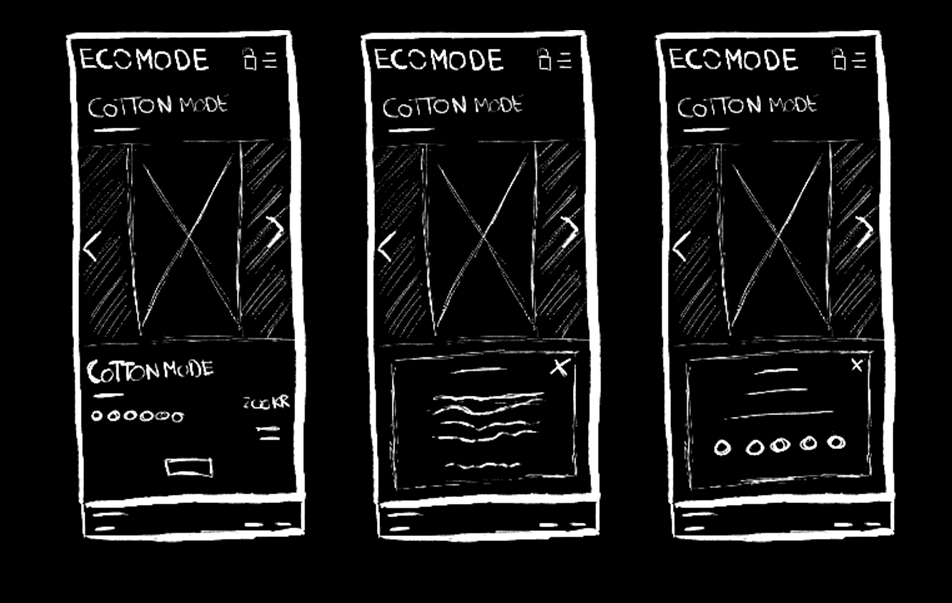 ECOMODE
COTTON MODE
COTTON MODE
200KR
ECOMODE
COTTON MODE
ECOMODE
COTTON MODE